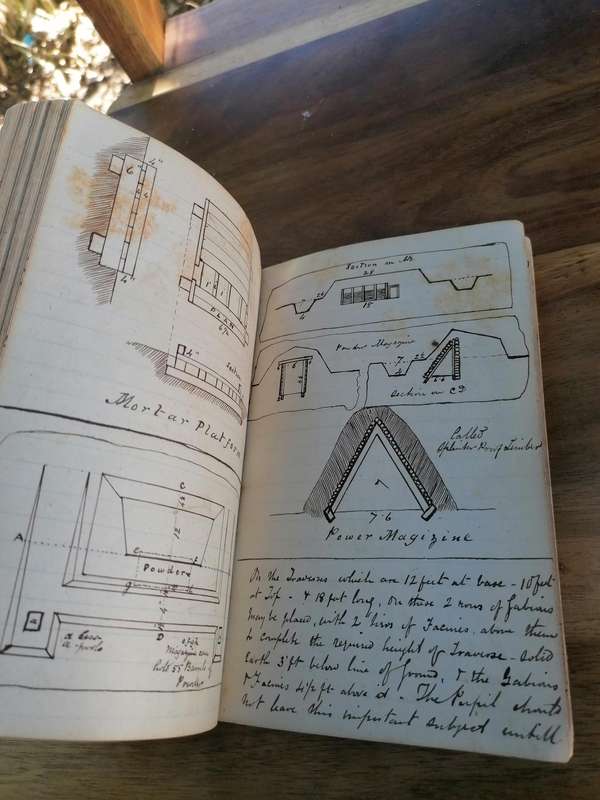 4"
6
4
PLAN
4"
Section
Mortar Platform
C
A
12
Powder
D
a
Magazine
Hold 55 Barrels of
Powder
Section on AB
28
7
4
15
Powder Magazine
6
7
4
Section on CD
Called
Splinter Proof Timber
7
7.6
Power Magizine
On the Traverses which are 12 feet at base - 10 feet
at Top - & 18 feet long, on these 2 rows of Gabions
may be placed, with 2 rows of Facines, above them
to complete the required height of Traverse - solid
Earth 3 ft below line of Ground, & the Gabions
& Facines 4½ ft above d - The Pupil should
not leave this important subject untill